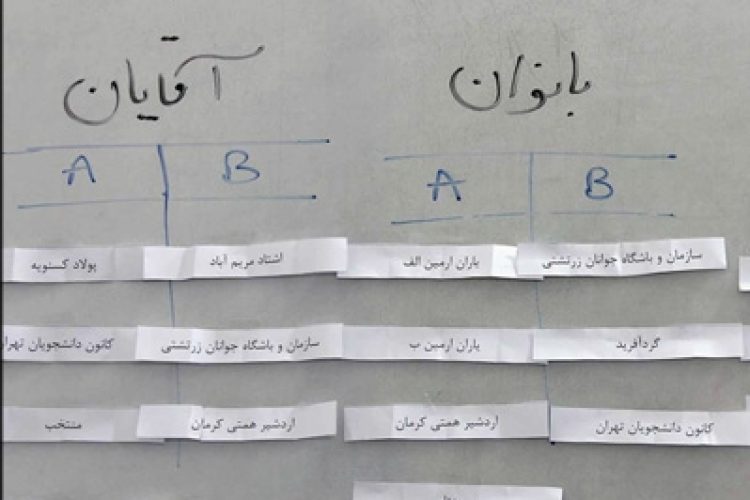 بانوان
آقایان
B
A
B
A
سازمان و باشگاه جوانان زرتشتی
یاران ارمین الف
اشتاد مریم آباد
پولاد کسنویه
گردآفرید
یاران ارمین ب
سازمان و باشگاه جوانان زرتشتی
کانون دانشجویان تهران
کانون دانشجویان تهران
اردشیر همتی کرمان
اردشیر همتی کرمان
منتخب